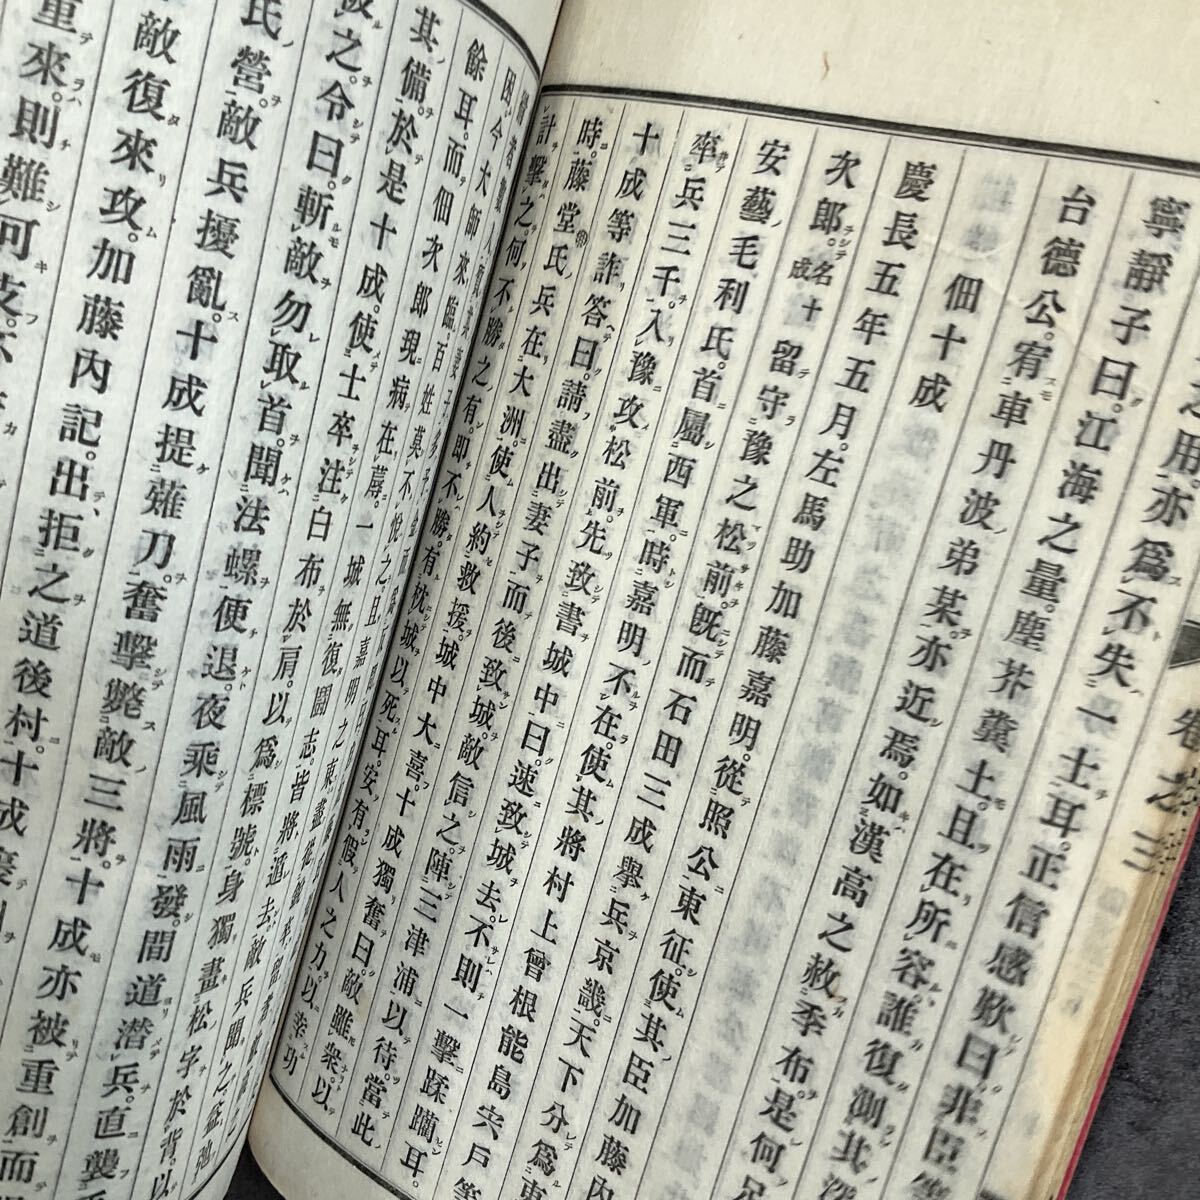 亦爲不失一士耳正信感歎曰非臣等
寧靜子曰。江海之量。塵芥糞土。且在所容。誰復測其深
台德公。宥車丹波弟某。亦近焉。如漢高之赦季布。是何足
佃十成
慶長五年五月。左馬助加藤嘉明。從照公東征。使其臣加藤內
次郎。名十成留守豫之松前。既而石田三成擧兵京畿。天下分爲東
安藝毛利氏。首屬西軍。時嘉明不在。使其將村上曾根能島宍戶等
率兵三千。入豫攻松前。先致書城中曰。速致城去。不則一擊蹂躪耳。
十成等詐答曰。請盡出妻子而後致城。敵信之。陣三津浦以待。當此
時。藤堂氏兵在大洲。使人約救援。城中大喜。十成獨奮曰。敵雖衆。以
計擊之。何不勝之有。即不勝。有枕城以死耳。安有假人之力。以幸功
因
今大師來臨。百姓莫不
悅之。且嘉明之
餘耳。而佃次郎現病在蓐。一城無復鬪志。皆將遁去。敵兵聞之。益弛
其備。於是十成。使士卒注白布於肩。以爲標號。身獨畫松字於背。以
之。令曰。斬敵勿取首。聞法螺便退。夜乘風雨發。間道潛兵。直襲
氏營。敵兵擾亂。十成提薙刀。奮擊斃敵三將。十成亦被重創而
敵復來攻。加藤內記。出拒之道後村。十成
重來。則難可支。不
卷之三